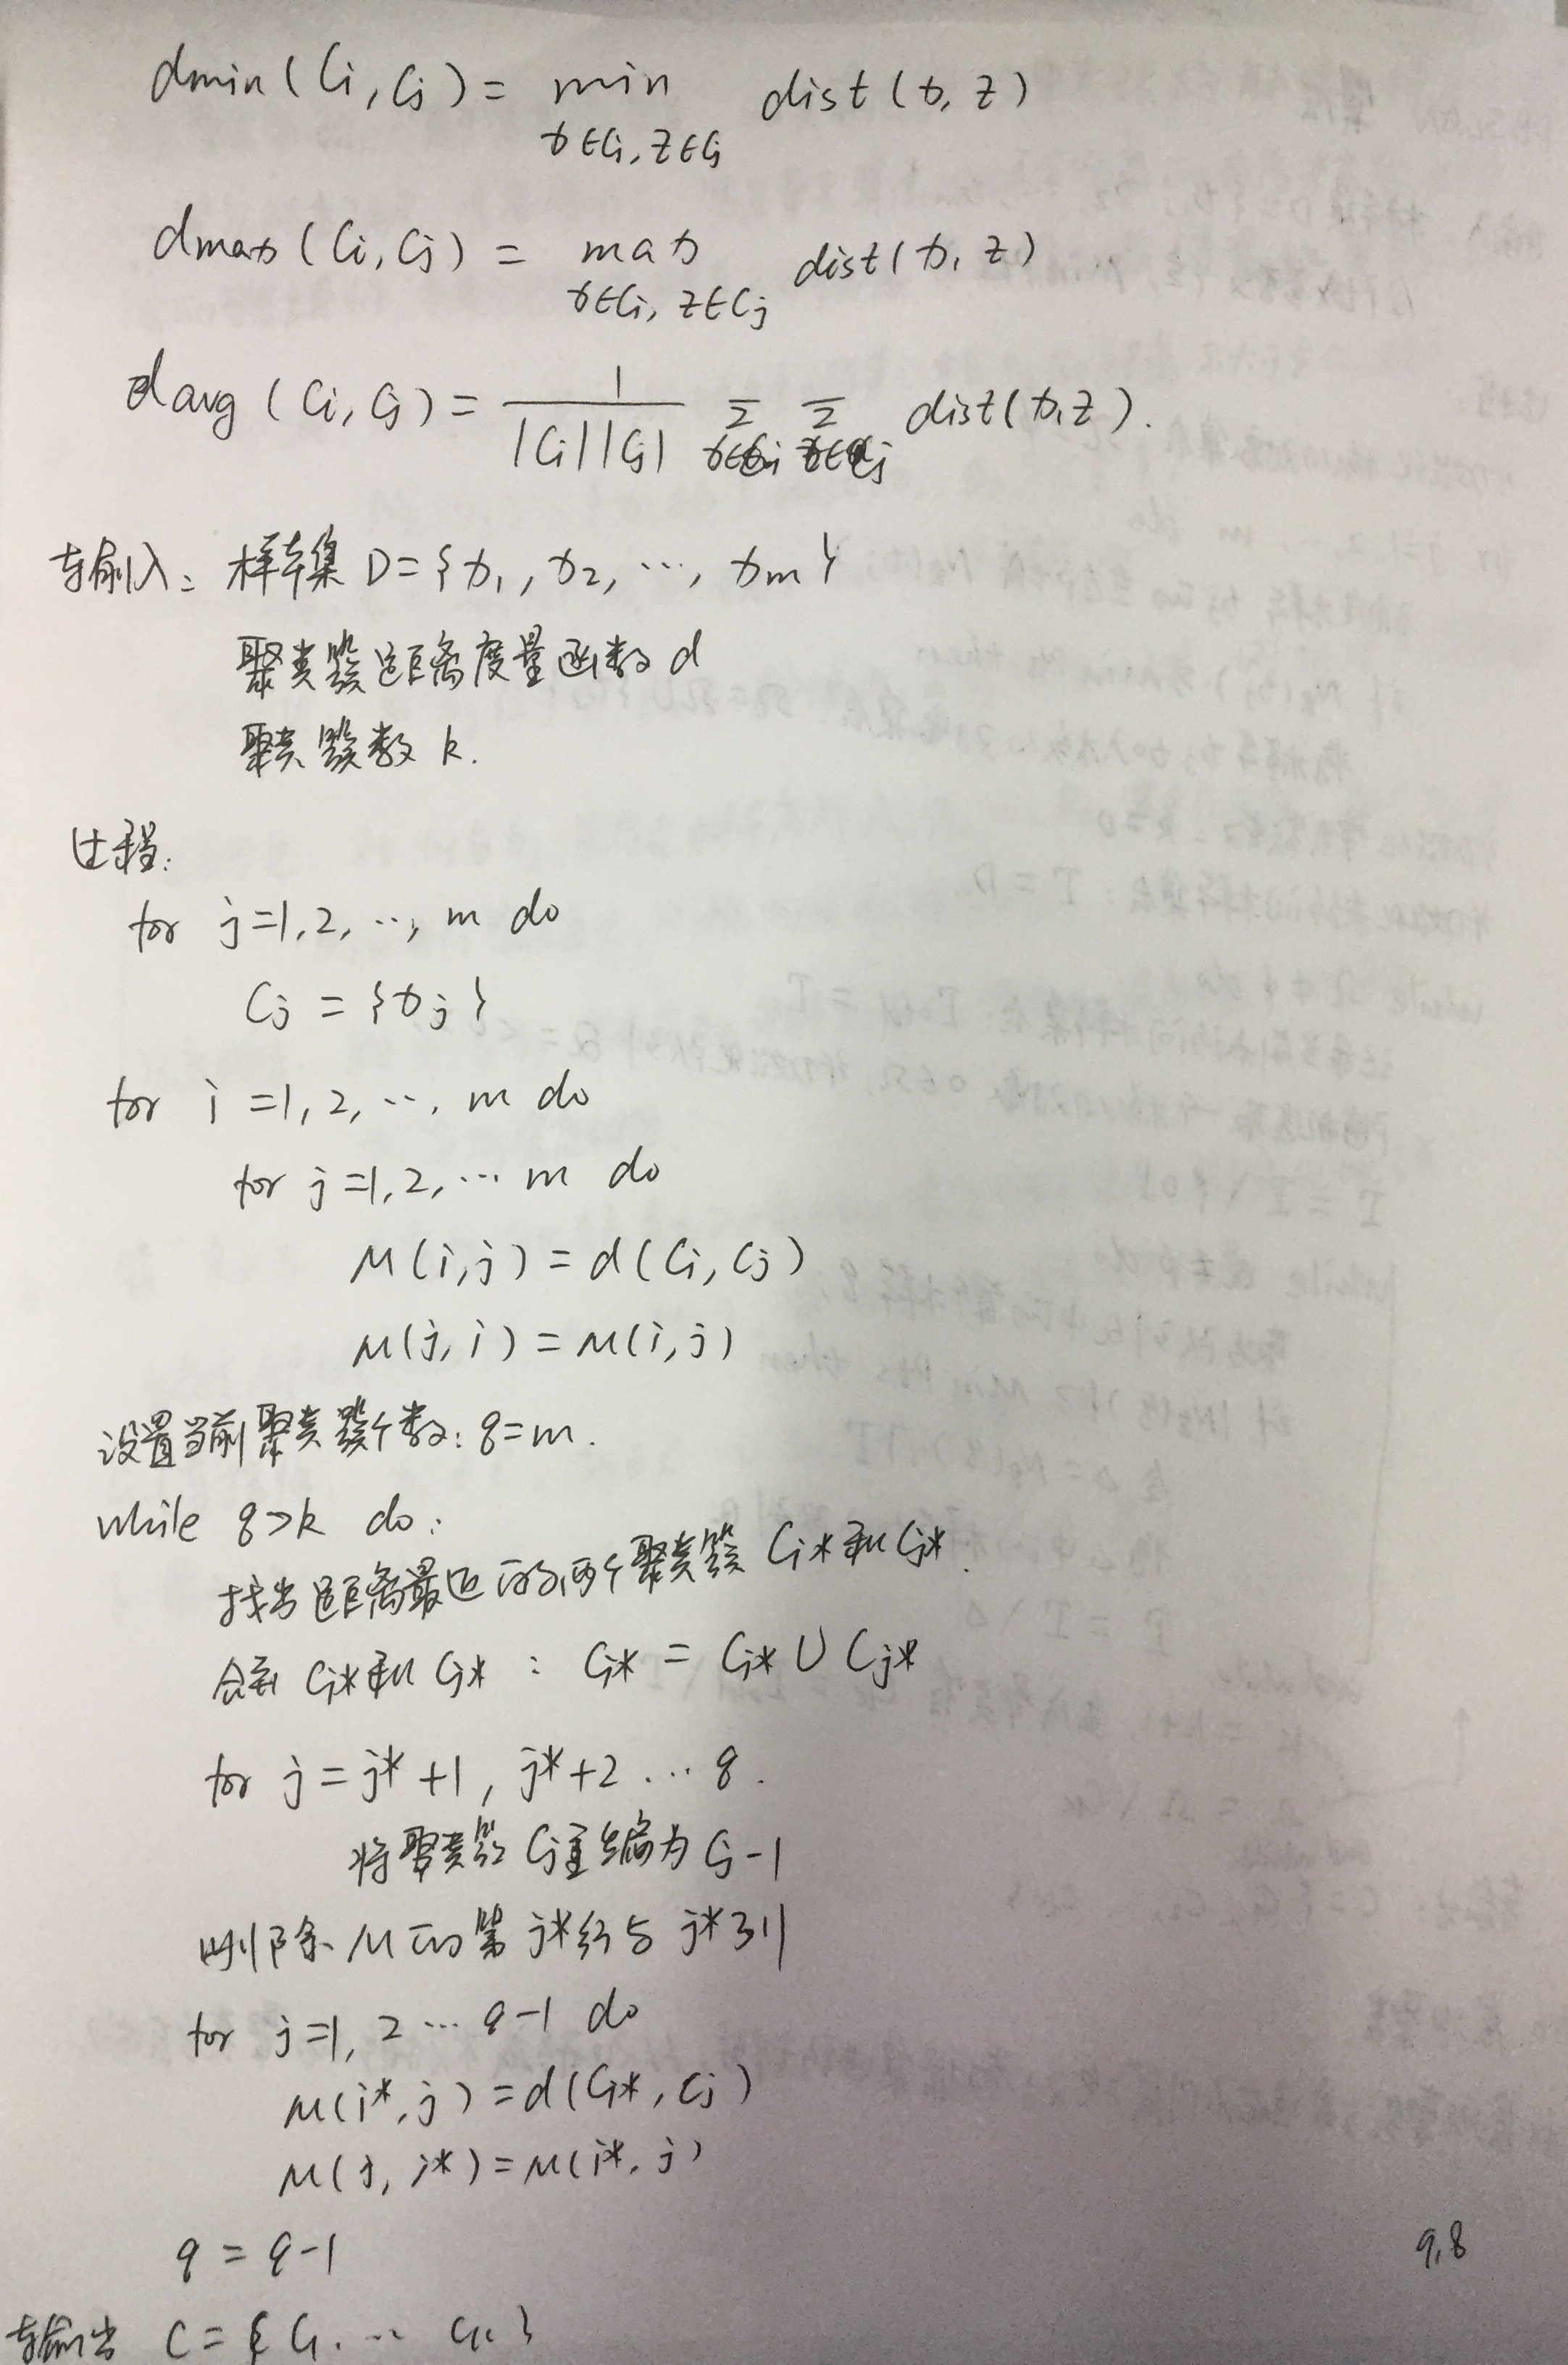 dmin(Ci, Cj) = min dist(x, z)
x∈Ci, z∈Cj
dmax(Ci, Cj) = max dist(x, z)
x∈Ci, z∈Cj
davg(Ci, Cj) = 1/(|Ci||Cj|) Σ Σ dist(x, z).
x∈Ci z∈Cj
输入: 样本集 D={x1, x2, ..., xm}
聚类簇距离度量函数 d
聚类簇数 k.
过程:
for j=1, 2, ..., m do
Cj = {xj}
for i=1, 2, ..., m do
for j=1, 2, ... m do
M(i,j) = d(Ci, Cj)
M(j,i) = M(i,j)
设置当前聚类簇个数: q=m.
while q>k do:
找出距离最近的两个聚类簇 Ci*和Cj*.
合并 Ci*和Cj* : Ci* = Ci* ∪ Cj*
for j = j*+1, j*+2 ... q.
将聚类簇 Cj重编为 Cj-1
删除 M 的第 j*行与 j*列
for j=1, 2 ... q-1 do
M(i*, j) = d(Ci*, Cj)
M(j, i*) = M(i*, j)
q = q-1
9.8
输出 C = {C1. ... Ck}